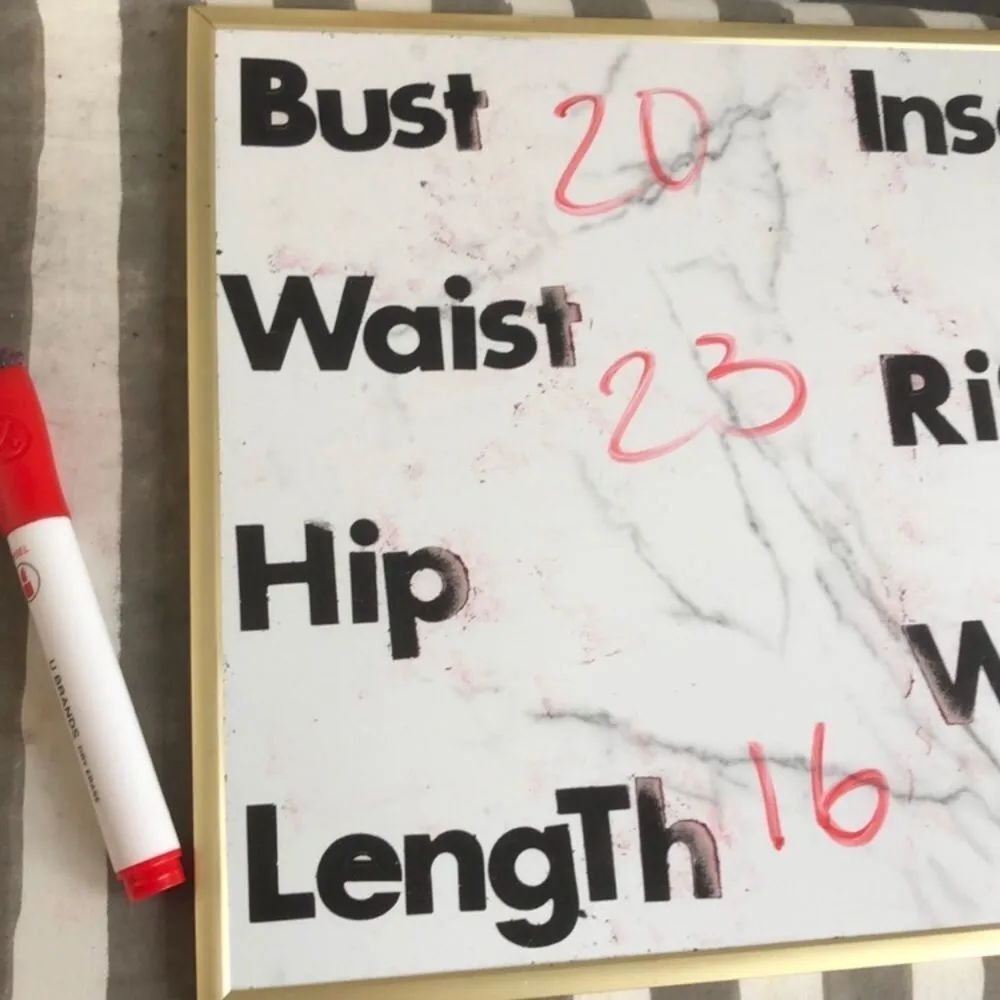 Bust 20
Ins
Waist 23
Ri
Hip
W
LengTh 16
U BRANDS DRY ERASE